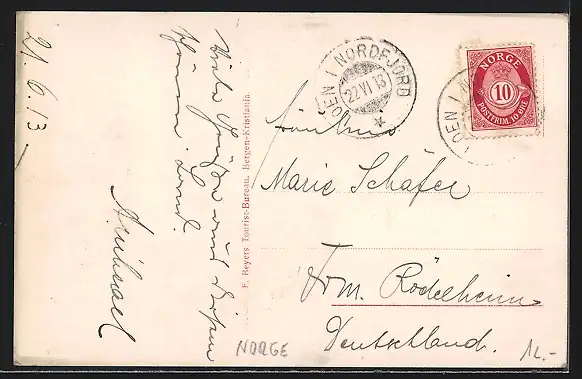 21. 6. 13.
Viele Grüße aus diesem
schönen Land.
F. Beyers Tourist-Bureau, Bergen-Kristiania.
LOEN I NORDFJORD
22 VI 13
NORGE
10
POSTFRIM. 10 ØRE
LOEN I
Fräulein
Marie Schäfer
Frm. Rödelheim
Deutschland.
NORGE
12.-